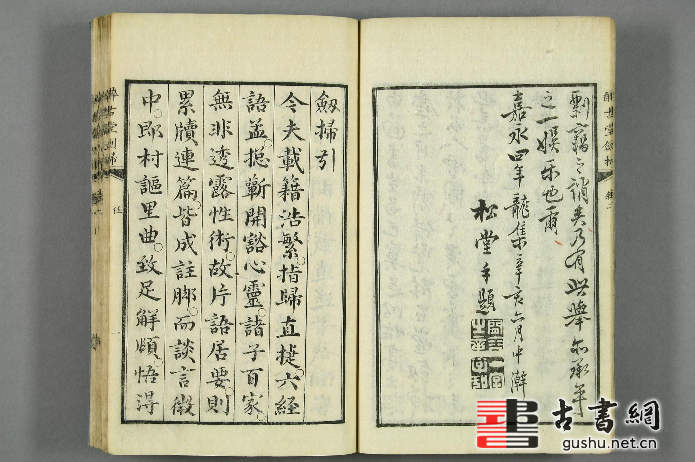 剽竊之誚矣乃有此舉亦承平
之一娛乐也爾
嘉永四年龍集辛亥六月中澣
松堂手題
劔掃引
今夫載籍浩繁。指歸直捷。六經
語孟。摠斬開谿心靈。諸子百家。
無非透露性術。故片語居要。則
累牘連篇。皆成註脚。而談言微
中。即村謳里曲。致足解頤。悟得
醉古堂劔掃
古書網
gushu.net.cn